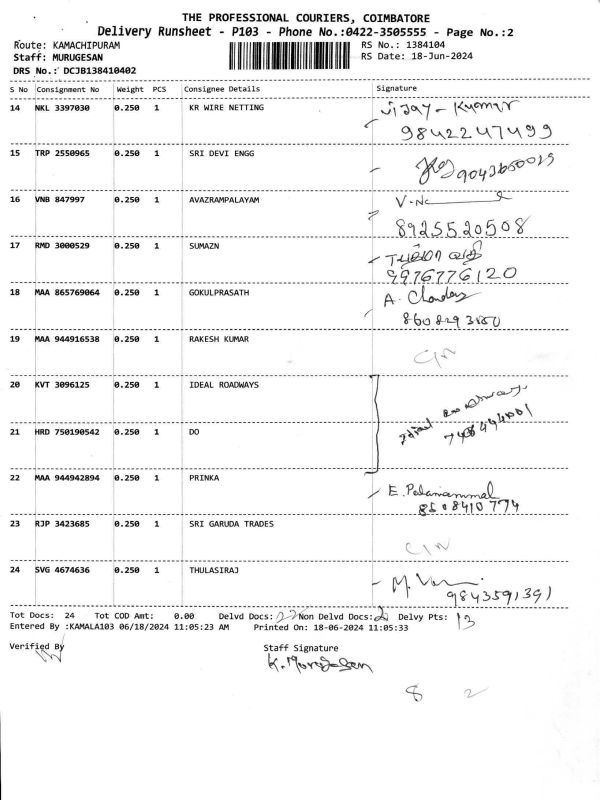 THE PROFESSIONAL COURIERS, COIMBATORE
Delivery Runsheet - P103 - Phone No.:0422-3505555 - Page No.:2
Route: KAMACHIPURAM RS No.: 1384104
Staff: MURUGESAN RS Date: 18-Jun-2024
DRS No.: DCJB138410402
S No Consignment No Weight PCS Consignee Details Signature
14 NKL 3397030 0.250 1 KR WIRE NETTING Vijay - Kumar
9842247499
15 TRP 2550965 0.250 1 SRI DEVI ENGG
16 VNB 847997 0.250 1 AVAZRAMPALAYAM
8925520508
17 RMD 3000529 0.250 1 SUMAZN
9976776120
18 MAA 865769064 0.250 1 GOKULPRASATH A.
19 MAA 944916538 0.250 1 RAKESH KUMAR
20 KVT 3096125 0.250 1 IDEAL ROADWAYS
21 HRD 750190542 0.250 1 DO
22 MAA 944942894 0.250 1 PRINKA E. Palaniammal
8508410774
23 RJP 3423685 0.250 1 SRI GARUDA TRADES
24 SVG 4674636 0.250 1 THULASIRAJ M.
9843591391
Tot Docs: 24 Tot COD Amt: 0.00 Delvd Docs: 22 Non Delvd Docs: 2 Delvy Pts: 13
Entered By :KAMALA103 06/18/2024 11:05:23 AM Printed On: 18-06-2024 11:05:33
Verified By Staff Signature
K. Murugesan
8 2